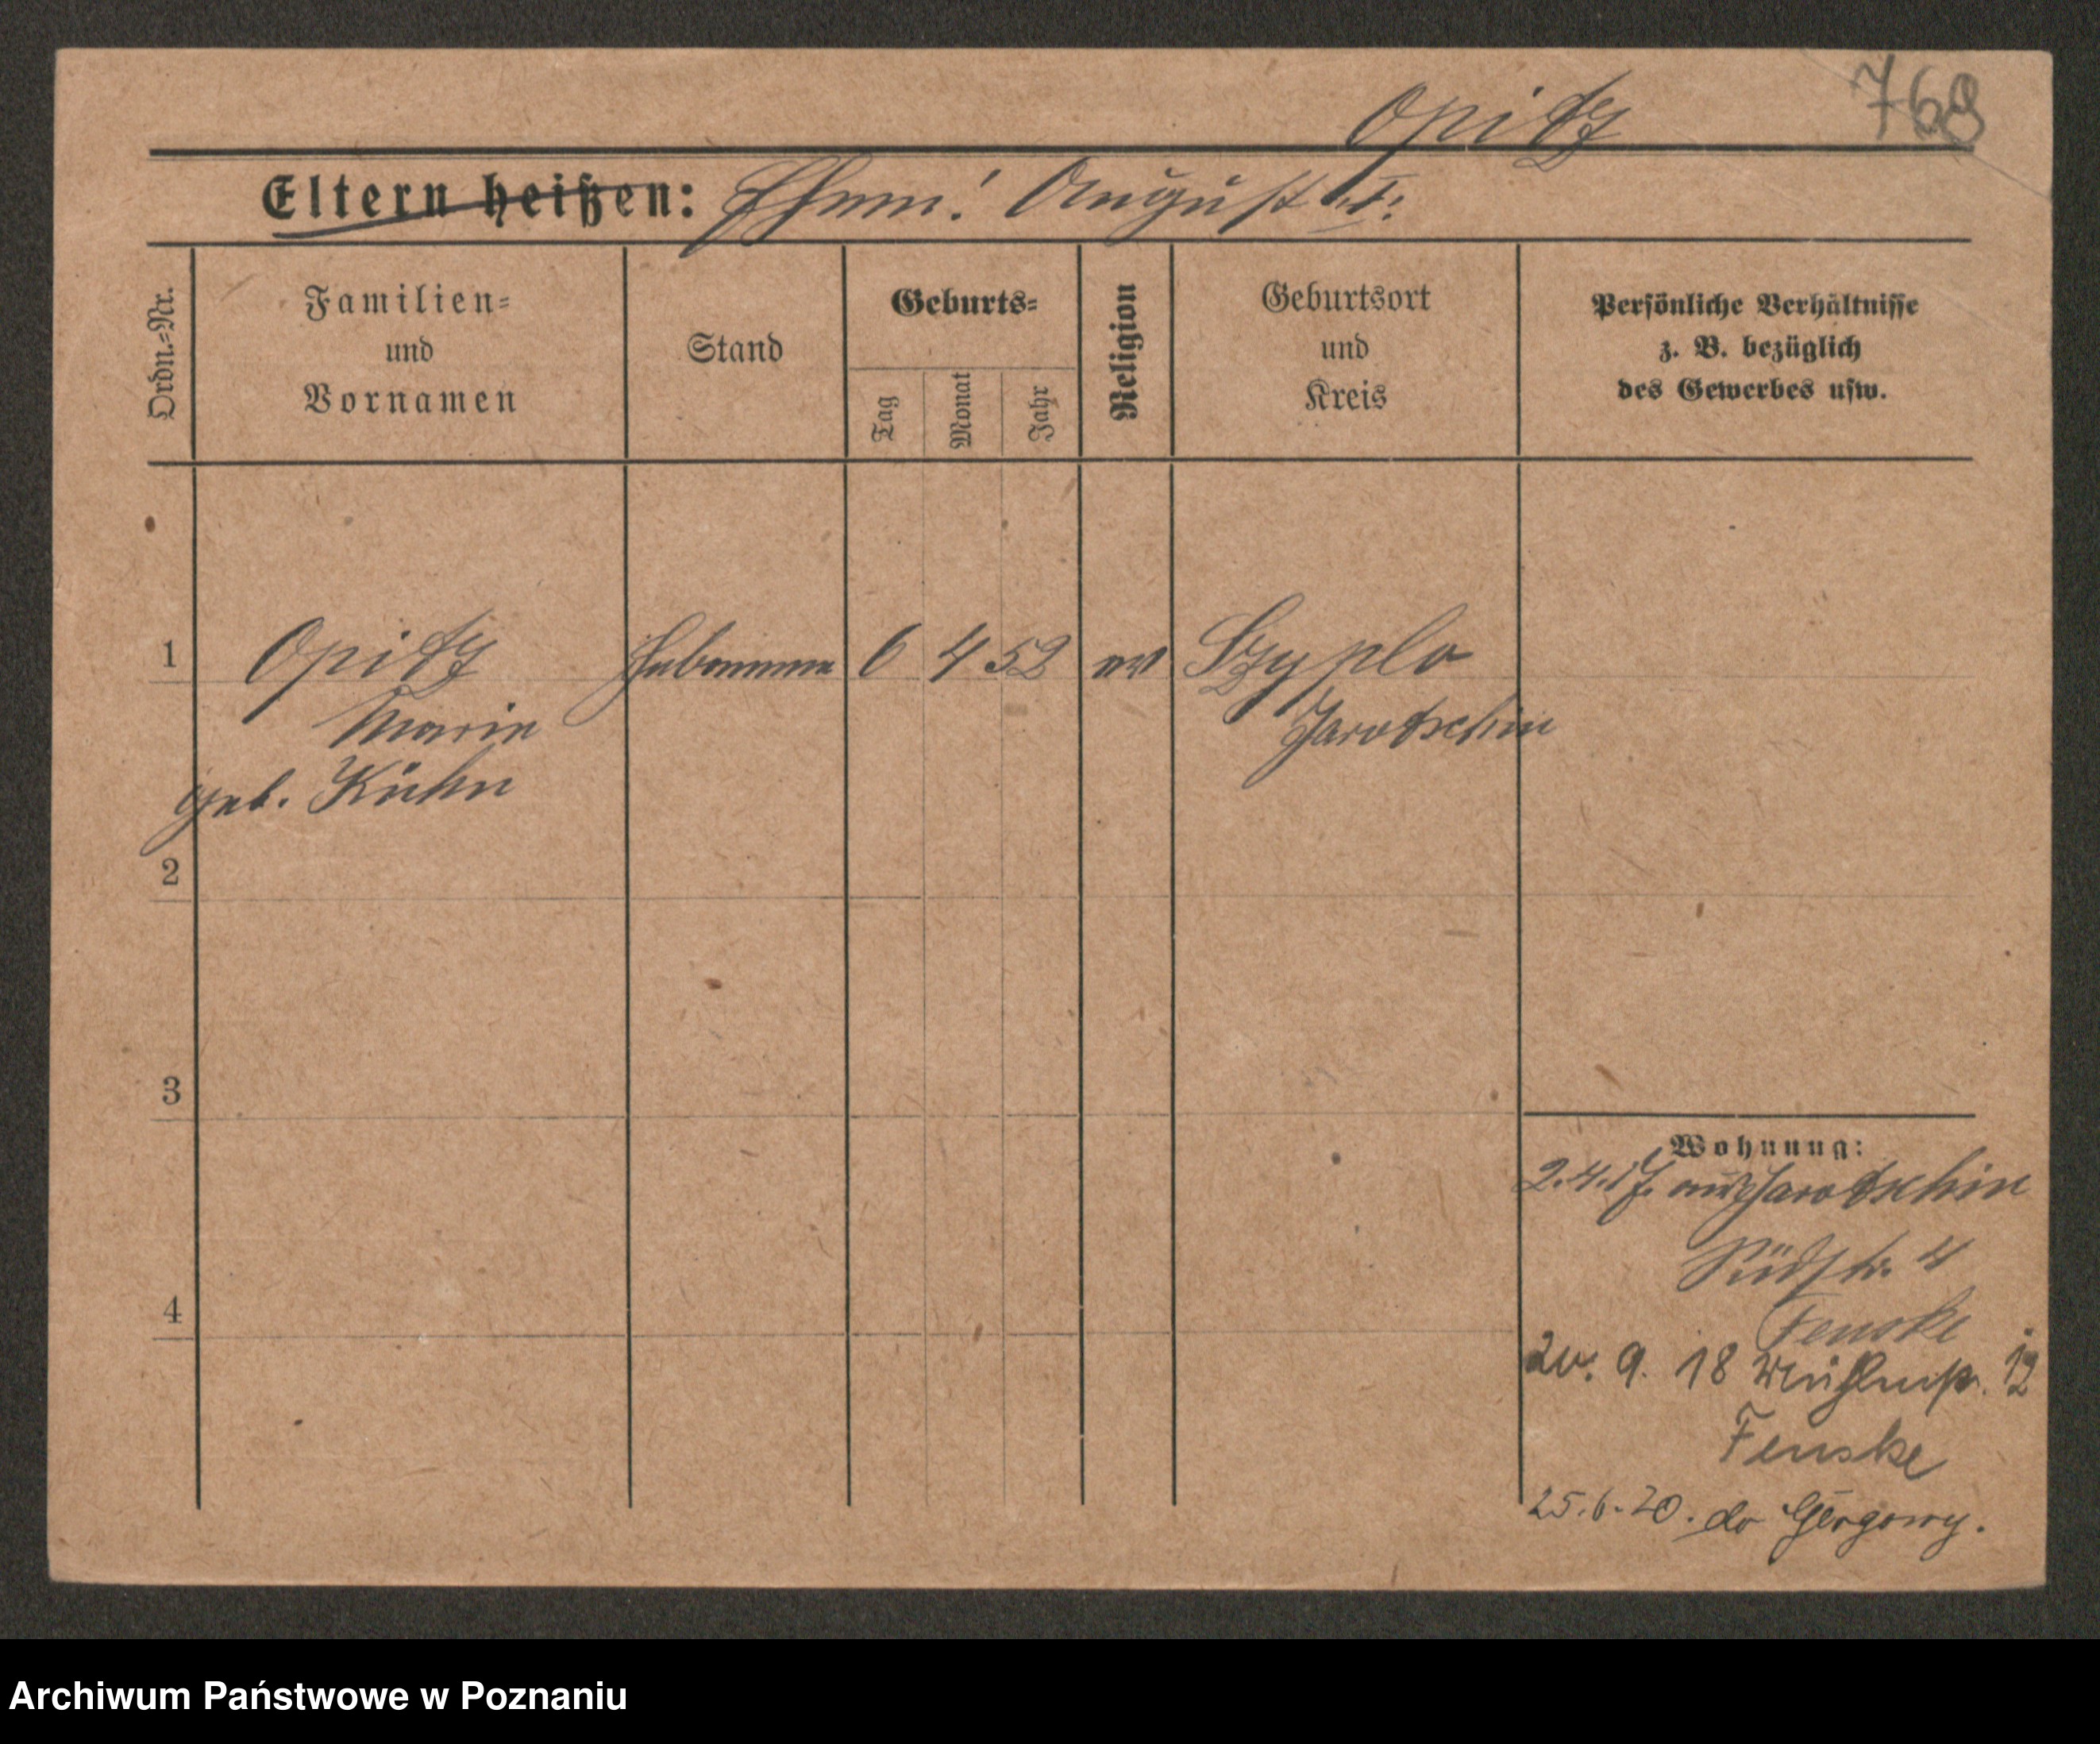 768
Opitz
Eltern heißen: Ehem: August †.
Ordn.=Nr.
Familien=
und
Vornamen
Stand
Geburts=
Tag
Monat
Jahr
Religion
Geburtsort
und
Kreis
Persönliche Verhältnisse
z. B. bezüglich
des Gewerbes usw.
1 Opitz Hebamme 6 4 52 ev Szyplo
Marie Jarotschin
geb. Kühn
2
3
4
Wohnung:
2.4.17. aus Jarotschin
Südstr. 4
Fenske
9. 18 12
Fenske
25.6.20. do
Archiwum Państwowe w Poznaniu